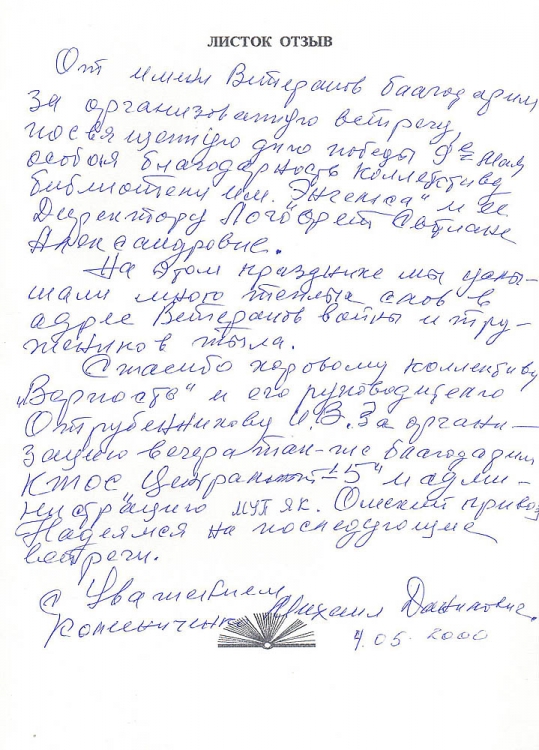 ЛИСТОК ОТЗЫВ
От имени Ветеранов благодарим
за организованную встречу,
посвященную дню победы 9е мая
особоя благодарность коллективу
библиотеки им. "Энгельса" и её
Директору Погострейт Светлане
Александровне.
На этом празднике мы услы-
шали много теплых слов в
адрес Ветеранов войны и тру-
жеников тыла.
Спасибо хоровому коллективу
„Верность" и его руководителю
Отрубенникову И.В. За органи-
зацию вечера так-же благодарим
КТОС "Центральный-5" и адми-
нистрацию МУП ЯК. Омский привоз
Надеямся на последующие
встречи.
С Уважением
Михаил Данилович.
4.05.2000